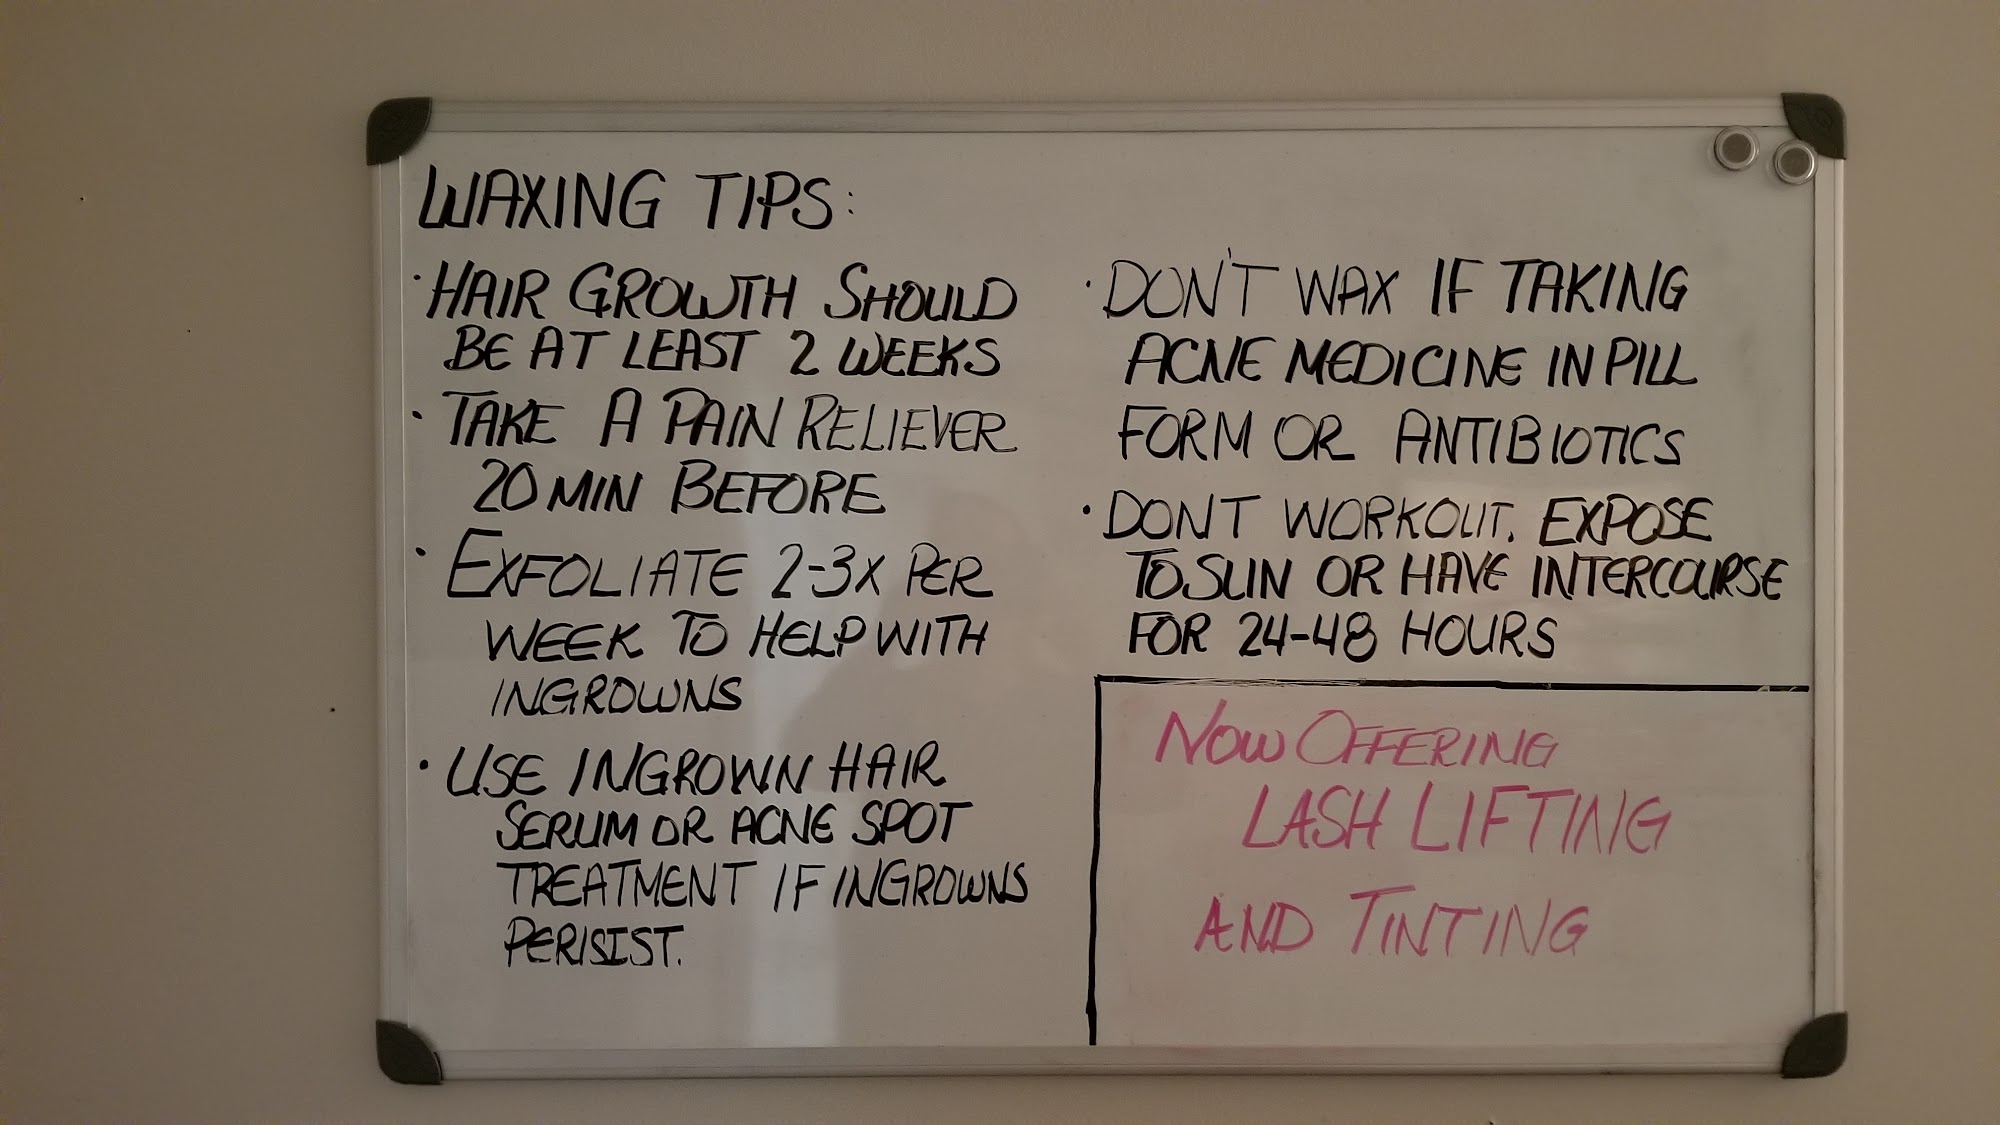 WAXING TIPS:
· HAIR GROWTH SHOULD
BE AT LEAST 2 WEEKS
· TAKE A PAIN RELIEVER
20 MIN BEFORE
· EXFOLIATE 2-3X PER
WEEK TO HELP WITH
INGROWNS
· USE INGROWN HAIR
SERUM OR ACNE SPOT
TREATMENT IF INGROWNS
PERISIST.
· DON'T WAX IF TAKING
ACNE MEDICINE IN PILL
FORM OR ANTIBIOTICS
· DONT WORKOUT, EXPOSE
TO SUN OR HAVE INTERCOURSE
FOR 24-48 HOURS
NOW OFFERING
LASH LIFTING
AND TINTING